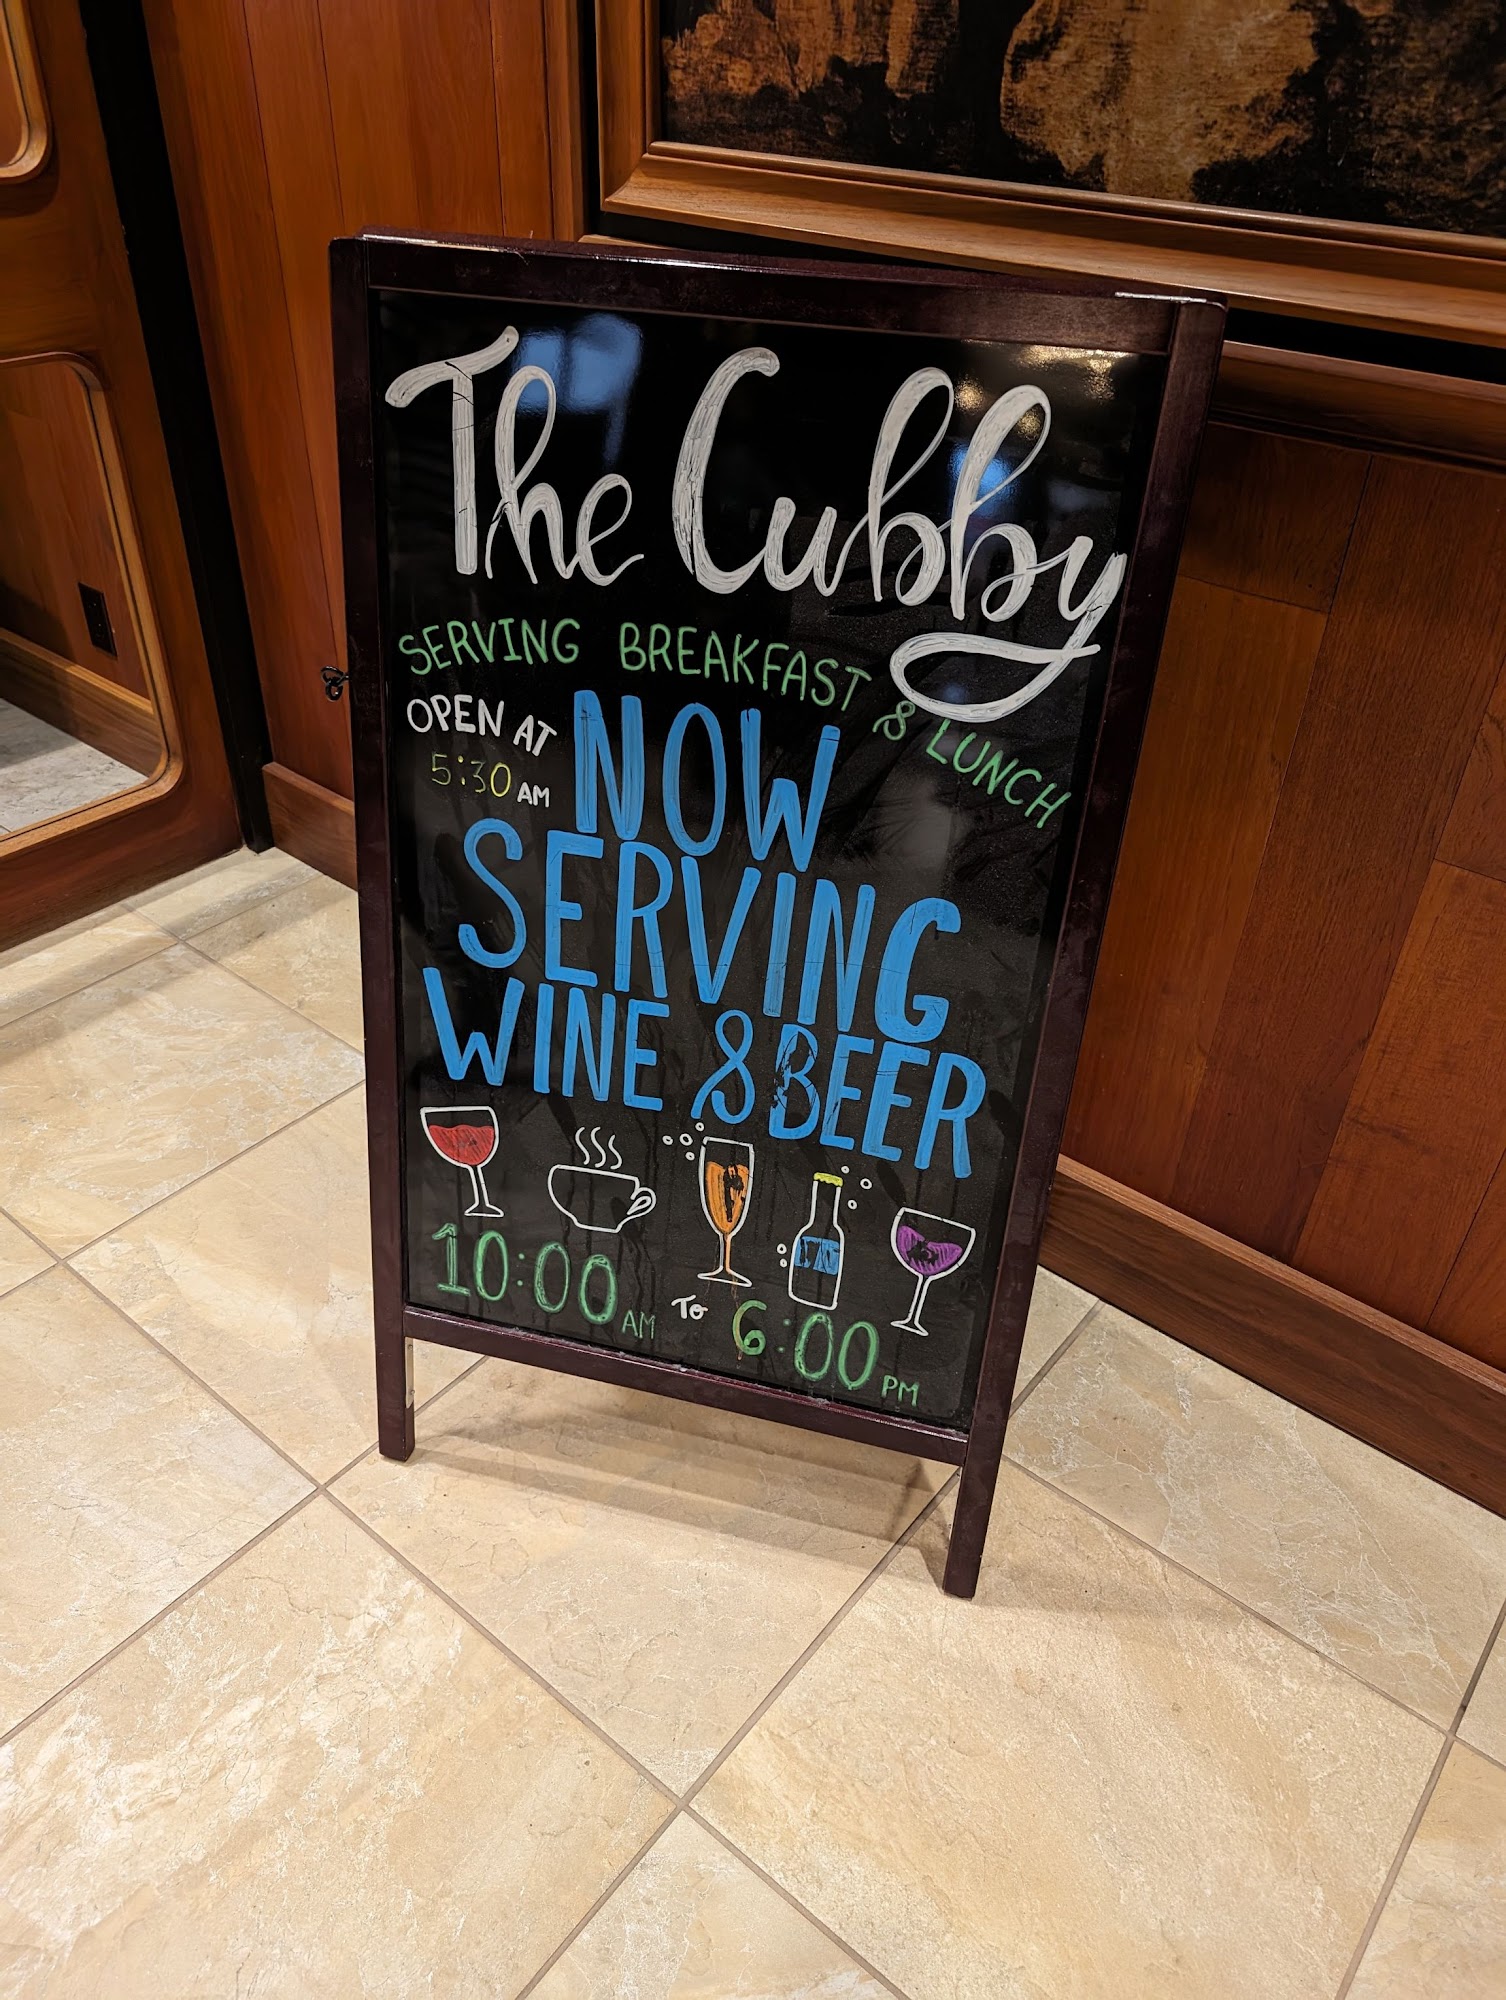 The Cubby
SERVING BREAKFAST & LUNCH
OPEN AT
5:30 AM
NOW
SERVING
WINE & BEER
10:00 AM TO 6:00 PM